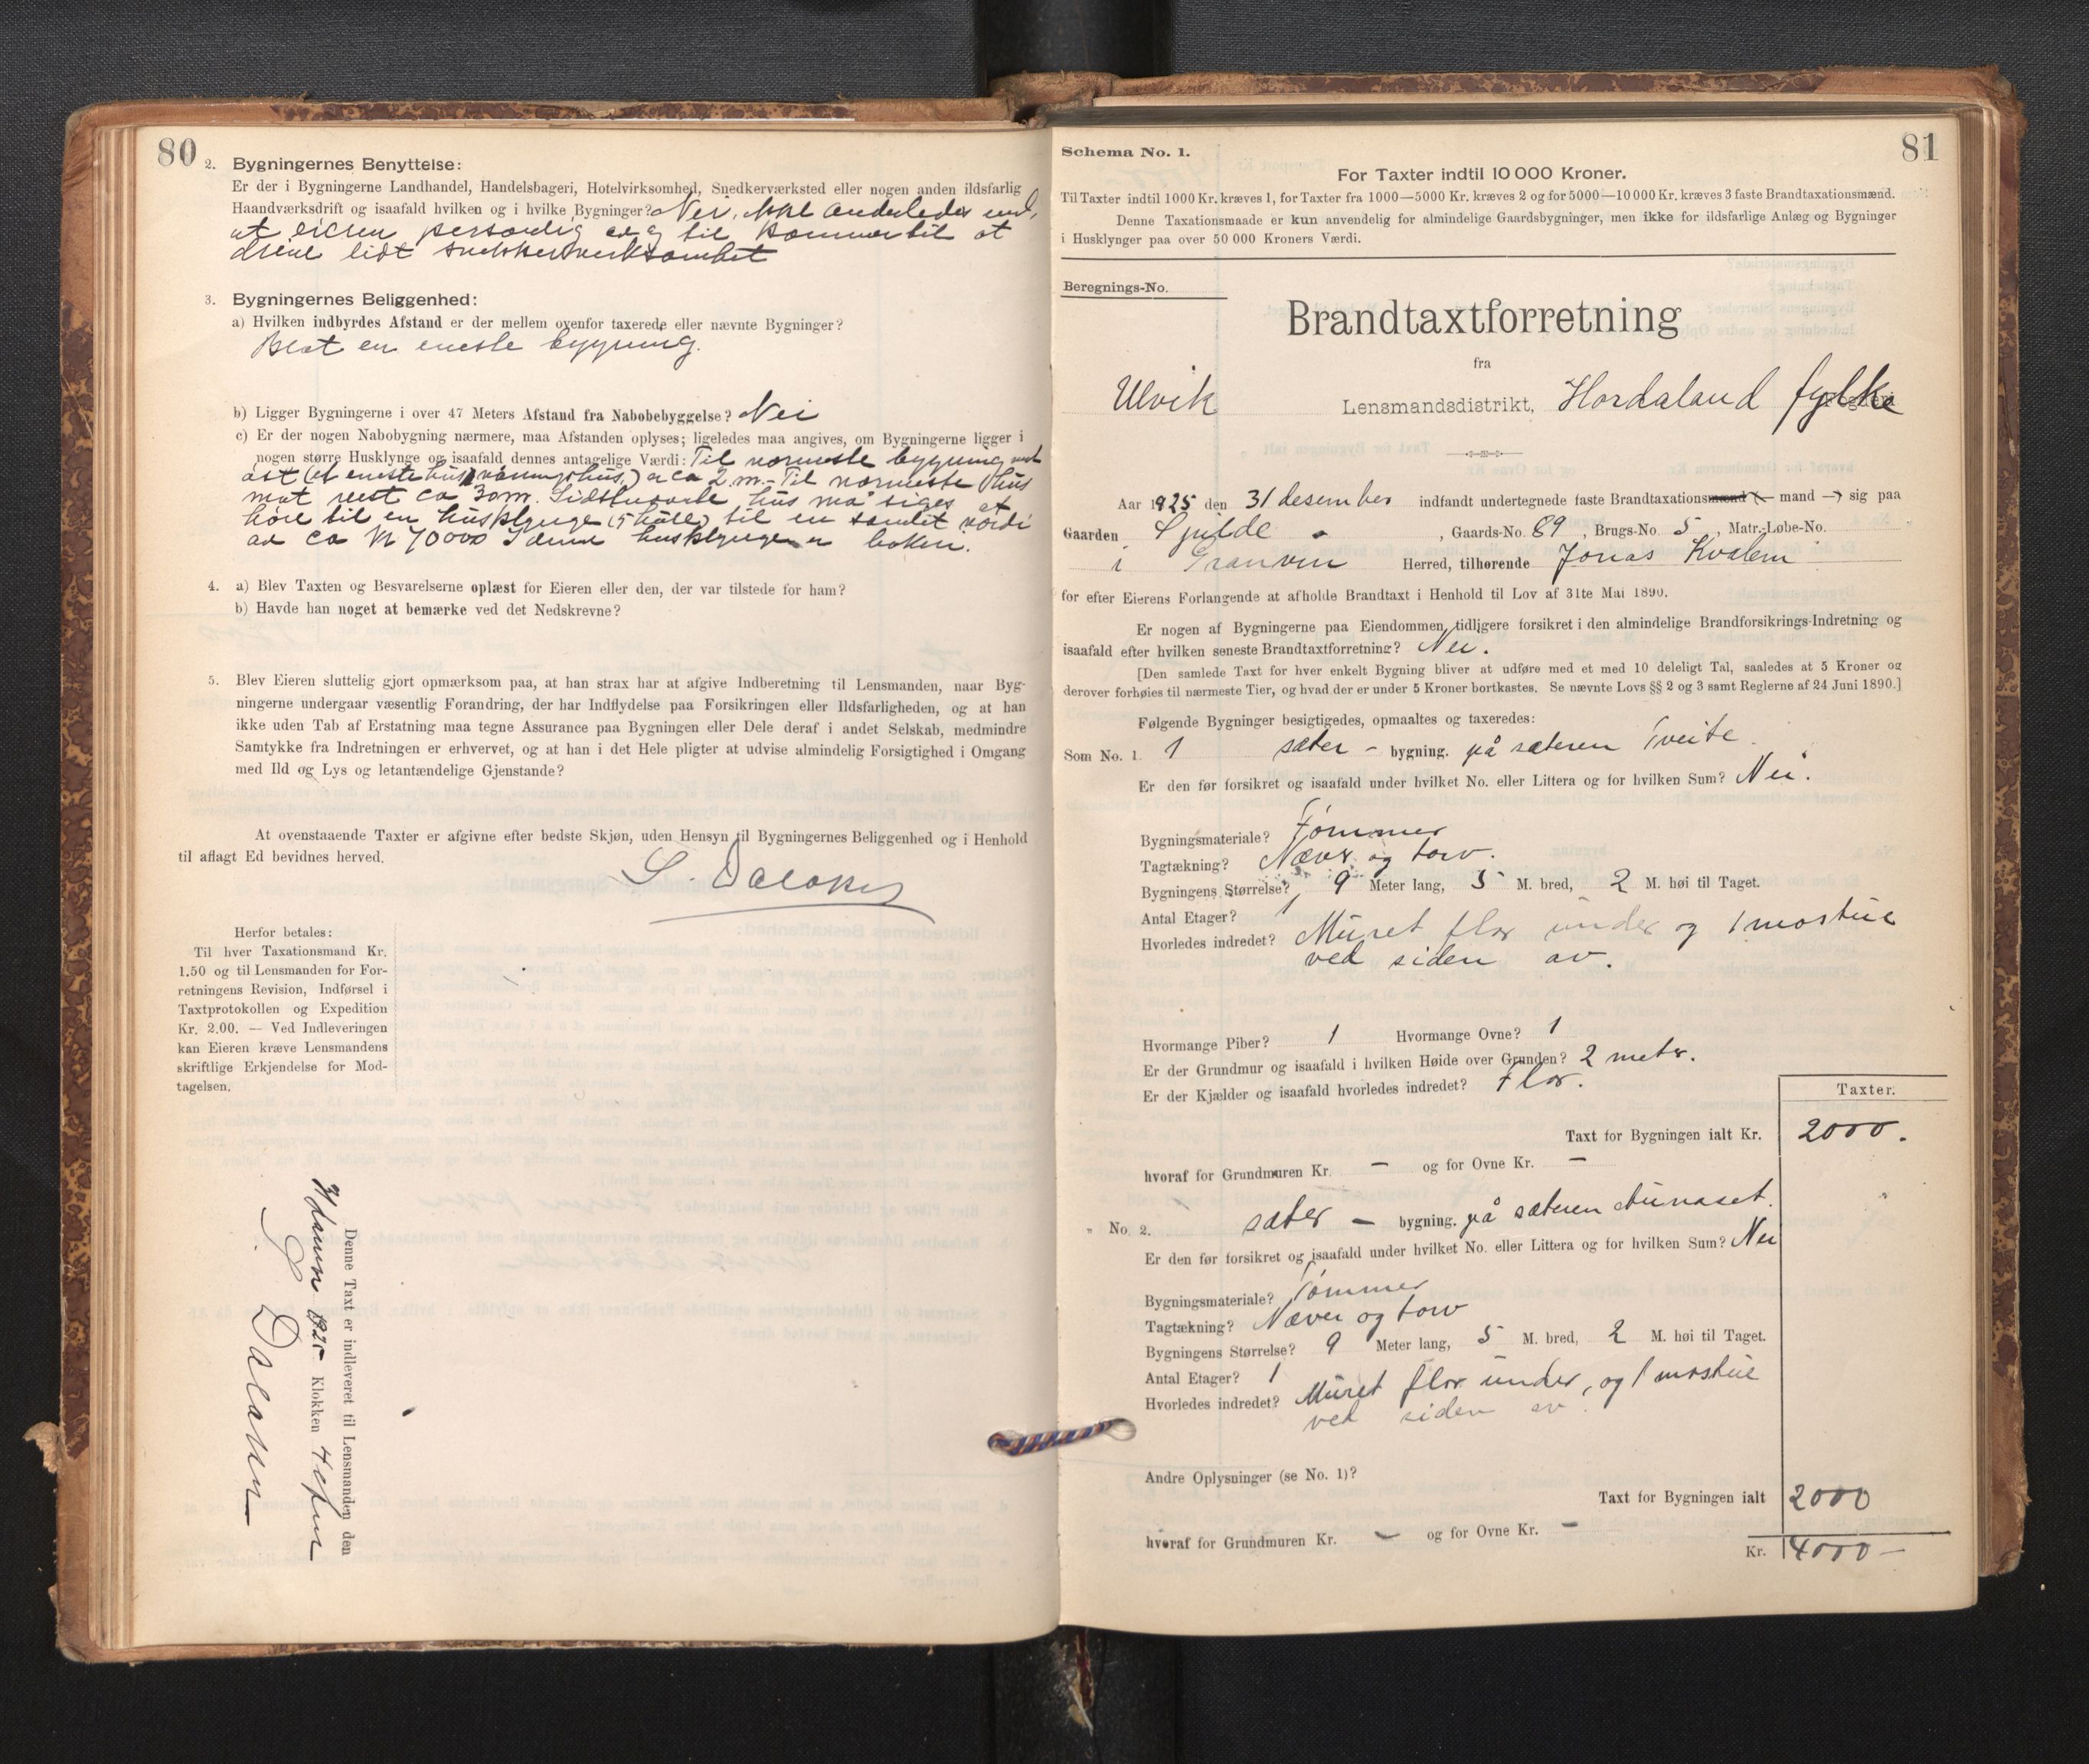 80
2. Bygningernes Benyttelse:
Er der i Bygningerne Landhandel, Handelsbageri, Hotelvirksomhed, Snedkerværksted eller nogen anden ildsfarlig
Haandværksdrift og isaafald hvilken og i hvilke Bygninger? Nei, ikke anderledes end,
at eieren personlig av og til kommer til at
drive lidt snekkerverksomhet
3. Bygningernes Beliggenhed:
a) Hvilken indbyrdes Afstand er der mellem ovenfor taxerede eller nævnte Bygninger?
Blot en eneste bygning.
b) Ligger Bygningerne i over 47 Meters Afstand fra Nabobebyggelse? Nei
c) Er der nogen Nabobygning nærmere, maa Afstanden oplyses; ligeledes maa angives, om Bygningerne ligger i
nogen større Husklynge og isaafald dennes antagelige Værdi: Til nærmeste bygning mot
øst (et eneste hus, våningshus,) er ca 2 m. - Til nærmeste hus
mot vest ca 30 m. Sidstnævnte hus må siges at
høre til en husklynge til en samlet værdi
av ca kr 70000 I denne husklynge er
4. a) Blev Taxten og Besvarelserne oplæst for Eieren eller den, der var tilstede for ham?
b) Havde han noget at bemærke ved det Nedskrevne?
5. Blev Eieren sluttelig gjort opmærksom paa, at han strax har at afgive Indberetning til Lensmanden, naar Byg-
ningerne undergaar væsentlig Forandring, der har Indflydelse paa Forsikringen eller Ildsfarligheden, og at han
ikke uden Tab af Erstatning maa tegne Assurance paa Bygningen eller Dele deraf i andet Selskab, medmindre
Samtykke fra Indretningen er erhvervet, og at han i det Hele pligter at udvise almindelig Forsigtighed i Omgang
med Ild og Lys og letantændelige Gjenstande?
At ovenstaaende Taxter er afgivne efter bedste Skjøn, uden Hensyn til Bygningernes Beliggenhed og i Henhold
til aflagt Ed bevidnes herved.
Herfor betales:
Til hver Taxationsmand Kr.
1.50 og til Lensmanden for For-
retningens Revision, Indførsel i
Taxtprotokollen og Expedition
Kr. 2.00. — Ved Indleveringen
kan Eieren kræve Lensmandens
skriftlige Erkjendelse for Mod-
tagelsen.
Denne Taxt er indleveret til Lensmanden den
1925 Klokken 4
81
Schema No. 1.
For Taxter indtil 10 000 Kroner.
Til Taxter indtil 1000 Kr. kræves 1, for Taxter fra 1000—5000 Kr. kræves 2 og for 5000—10 000 Kr. kræves 3 faste Brandtaxationsmænd.
Denne Taxationsmaade er kun anvendelig for almindelige Gaardsbygninger, men ikke for ildsfarlige Anlæg og Bygninger
i Husklynger paa over 50 000 Kroners Værdi.
Beregnings-No.
Brandtaxtforretning
fra
Ulvik Lensmandsdistrikt, Hordaland fylke
Aar 1925 den 31 desember indfandt undertegnede faste Brandtaxationsmænd — mand — sig paa
Gaarden Gjilde , Gaards-No. 89, Brugs-No. 5, Matr.-Løbe-No.
i Granvin Herred, tilhørende Jonas Kvalem
for efter Eierens Forlangende at afholde Brandtaxt i Henhold til Lov af 31te Mai 1890.
Er nogen af Bygningerne paa Eiendommen tidligere forsikret i den almindelige Brandforsikrings-Indretning og
isaafald efter hvilken seneste Brandtaxtforretning? Nei.
[Den samlede Taxt for hver enkelt Bygning bliver at udføre med et med 10 deleligt Tal, saaledes at 5 Kroner og
derover forhøies til nærmeste Tier, og hvad der er under 5 Kroner bortkastes. Se nævnte Lovs §§ 2 og 3 samt Reglerne af 24 Juni 1890.]
Følgende Bygninger besigtigedes, opmaaltes og taxeredes:
Som No. 1. 1 sæter - bygning. på sæteren Tveite.
Er den før forsikret og isaafald under hvilket No. eller Littera og for hvilken Sum? Nei.
Bygningsmateriale? Tømmer
Tagtækning? Næver og torv.
Bygningens Størrelse? 9 Meter lang, 5 M. bred, 2 M. høi til Taget.
Antal Etager? 1
Hvorledes indredet? Muret flor under og 1 mostue
ved siden av.
Hvormange Piber? 1 Hvormange Ovne? 1
Er der Grundmur og isaafald i hvilken Høide over Grunden? 2 meter.
Er der Kjælder og isaafald hvorledes indredet? Flor.
Taxter.
Taxt for Bygningen ialt Kr. 2000.
hvoraf for Grundmuren Kr. — og for Ovne Kr. —
" No. 2. sæter — bygning. på sæteren
Er den før forsikret og isaafald under hvilket No. eller Littera og for hvilken Sum? Nei
Bygningsmateriale? Tømmer
Tagtækning? Næver og torv
Bygningens Størrelse? 9 Meter lang, 5 M. bred, 2 M. høi til Taget.
Antal Etager? 1
Hvorledes indredet? Muret flor under, og 1 mostue
ved siden av.
Andre Oplysninger (se No. 1)?
Taxt for Bygningen ialt 2000
hvoraf for Grundmuren Kr. — og for Ovne Kr. —
Kr. 4000 —